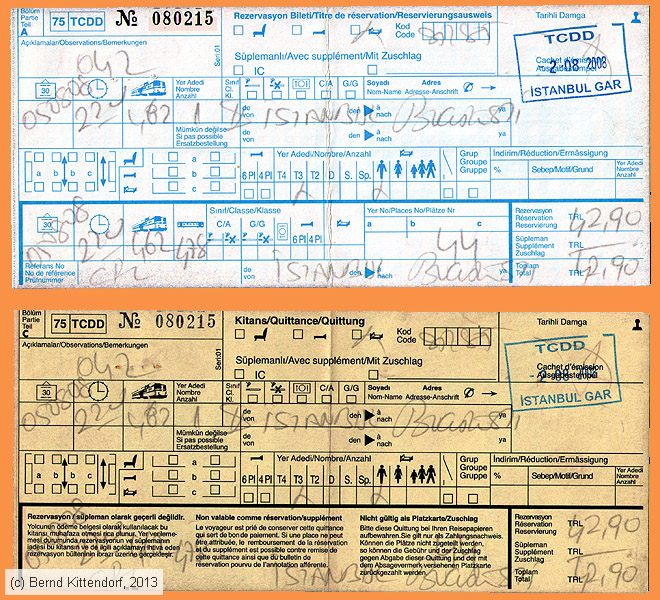 Bölüm Partie Teil A
75 TCDD
№ 080215
Rezervasyon Bileti/Titre de réservation/Reservierungsausweis
Kod Code
Tarihli Damga
Açıklamalar/Observations/Bemerkungen
Seri:01
Süplemanlı/Avec supplément/Mit Zuschlag
IC
Cachet d'émission
Ausgabestempel
TCDD
2-08 2008
İSTANBUL GAR
042
30
Yer Adedi Nombre Anzahl
Sınıf Cl. Kl.
C/A
G/G
Soyadı Nom-Name
Adres Adresse-Anschrift
050808
482
1
Mümkün değilse
Si pas possible
Ersatzbestellung
de von
İSTANBUL
à nach
ya
de von
à nach
ya
a b c
a b c
Yer Adedi/Nombre/Anzahl
6 Pl 4 Pl T4 T3 T2 D S. Sp.
Grup Groupe Gruppe
İndirim/Réduction/Ermässigung
% Sebep/Motif/Grund Yer Adedi Nombre Anzahl
30
Sınıf/Classe/Klasse
C/A
G/G
Yer No/Places No/Plätze Nr
a b c
44
Rezervasyon Réservation Reservierung
TRL
42,90
462
478
Süpleman Supplément Zuschlag
TRL
Referans No
No de référence
Prüfnummer
de von
İSTANBUL
à nach
Toplam Total
TRL
42,90
Bölüm Partie Teil C
75 TCDD
№ 080215
Kitans/Quittance/Quittung
Kod Code
Tarihli Damga
Açıklamalar/Observations/Bemerkungen
Seri:01
Süplemanlı/Avec supplément/Mit Zuschlag
IC
Cachet d'émission
Ausgabestempel
TCDD
2-08 2008
İSTANBUL GAR
042
30
Yer Adedi Nombre Anzahl
Sınıf Cl. Kl.
C/A
G/G
Soyadı Nom-Name
Adres Adresse-Anschrift
050808
482
1
Mümkün değilse
Si pas possible
Ersatzbestellung
de von
İSTANBUL
à nach
ya
de von
à nach
ya
a b c
a b c
Yer Adedi/Nombre/Anzahl
6 Pl 4 Pl T4 T3 T2 D S. Sp.
Grup Groupe Gruppe
İndirim/Réduction/Ermässigung
% Sebep/Motif/Grund Yer Adedi Nombre Anzahl
Rezervasyon süpleman olarak geçerli değildir.
Yolcunun ödeme belgesi olarak kullanılacak bu
kitansı muhafaza etmesi rica olunur. Yer verilememesi
durumunda rezervasyon ve süpleman
iadesi bu kitansın ve de ilgili açıklamayı ihtiva eden
rezervasyon bültenin ibrazı üzerine gerçekleşir.
Non valable comme réservation/supplément
Le voyageur est prié de conserver cette quittance
qui sert de bon de paiement. Si une place ne peut
être attribuée, le remboursement de la réservation
et du supplément est possible contre remise de
cette quittance ainsi que du bulletin de
réservation pourvu de l'annotation afférente.
Nicht gültig als Platzkarte/Zuschlag
Bitte diese Quittung bei Ihren Reisepapieren
aufbewahren.Sie gilt nur als Zahlungsnachweis.
Können die Plätze nicht zugeteilt werden,
so können die Gebühr und der Zuschlag
gegen Abgabe dieser Quittung und der mit
dem Absagevermerk versehenen Platzkarte
zurückgezahlt werden.
Rezervasyon Réservation Reservierung
TRL
42,90
Süpleman Supplément Zuschlag
TRL
Toplam Total
TRL
42,90
(c) Bernd Kittendorf, 2013